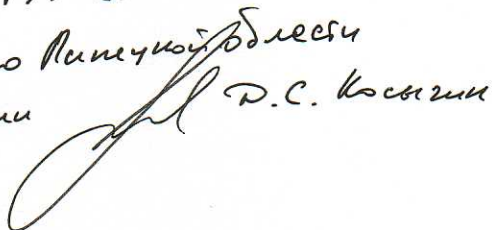 о Липецкой области
ии Д.С. Косыгин